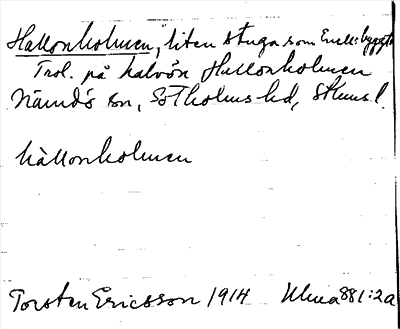 Hallonholmen, liten stuga som byggts
Trol. på halvön Hallonholmen
Nämdö sn, Sotholms hd, Sthms l.
hållonholmen
Torsten Ericsson 1914 Ulma 881:2a